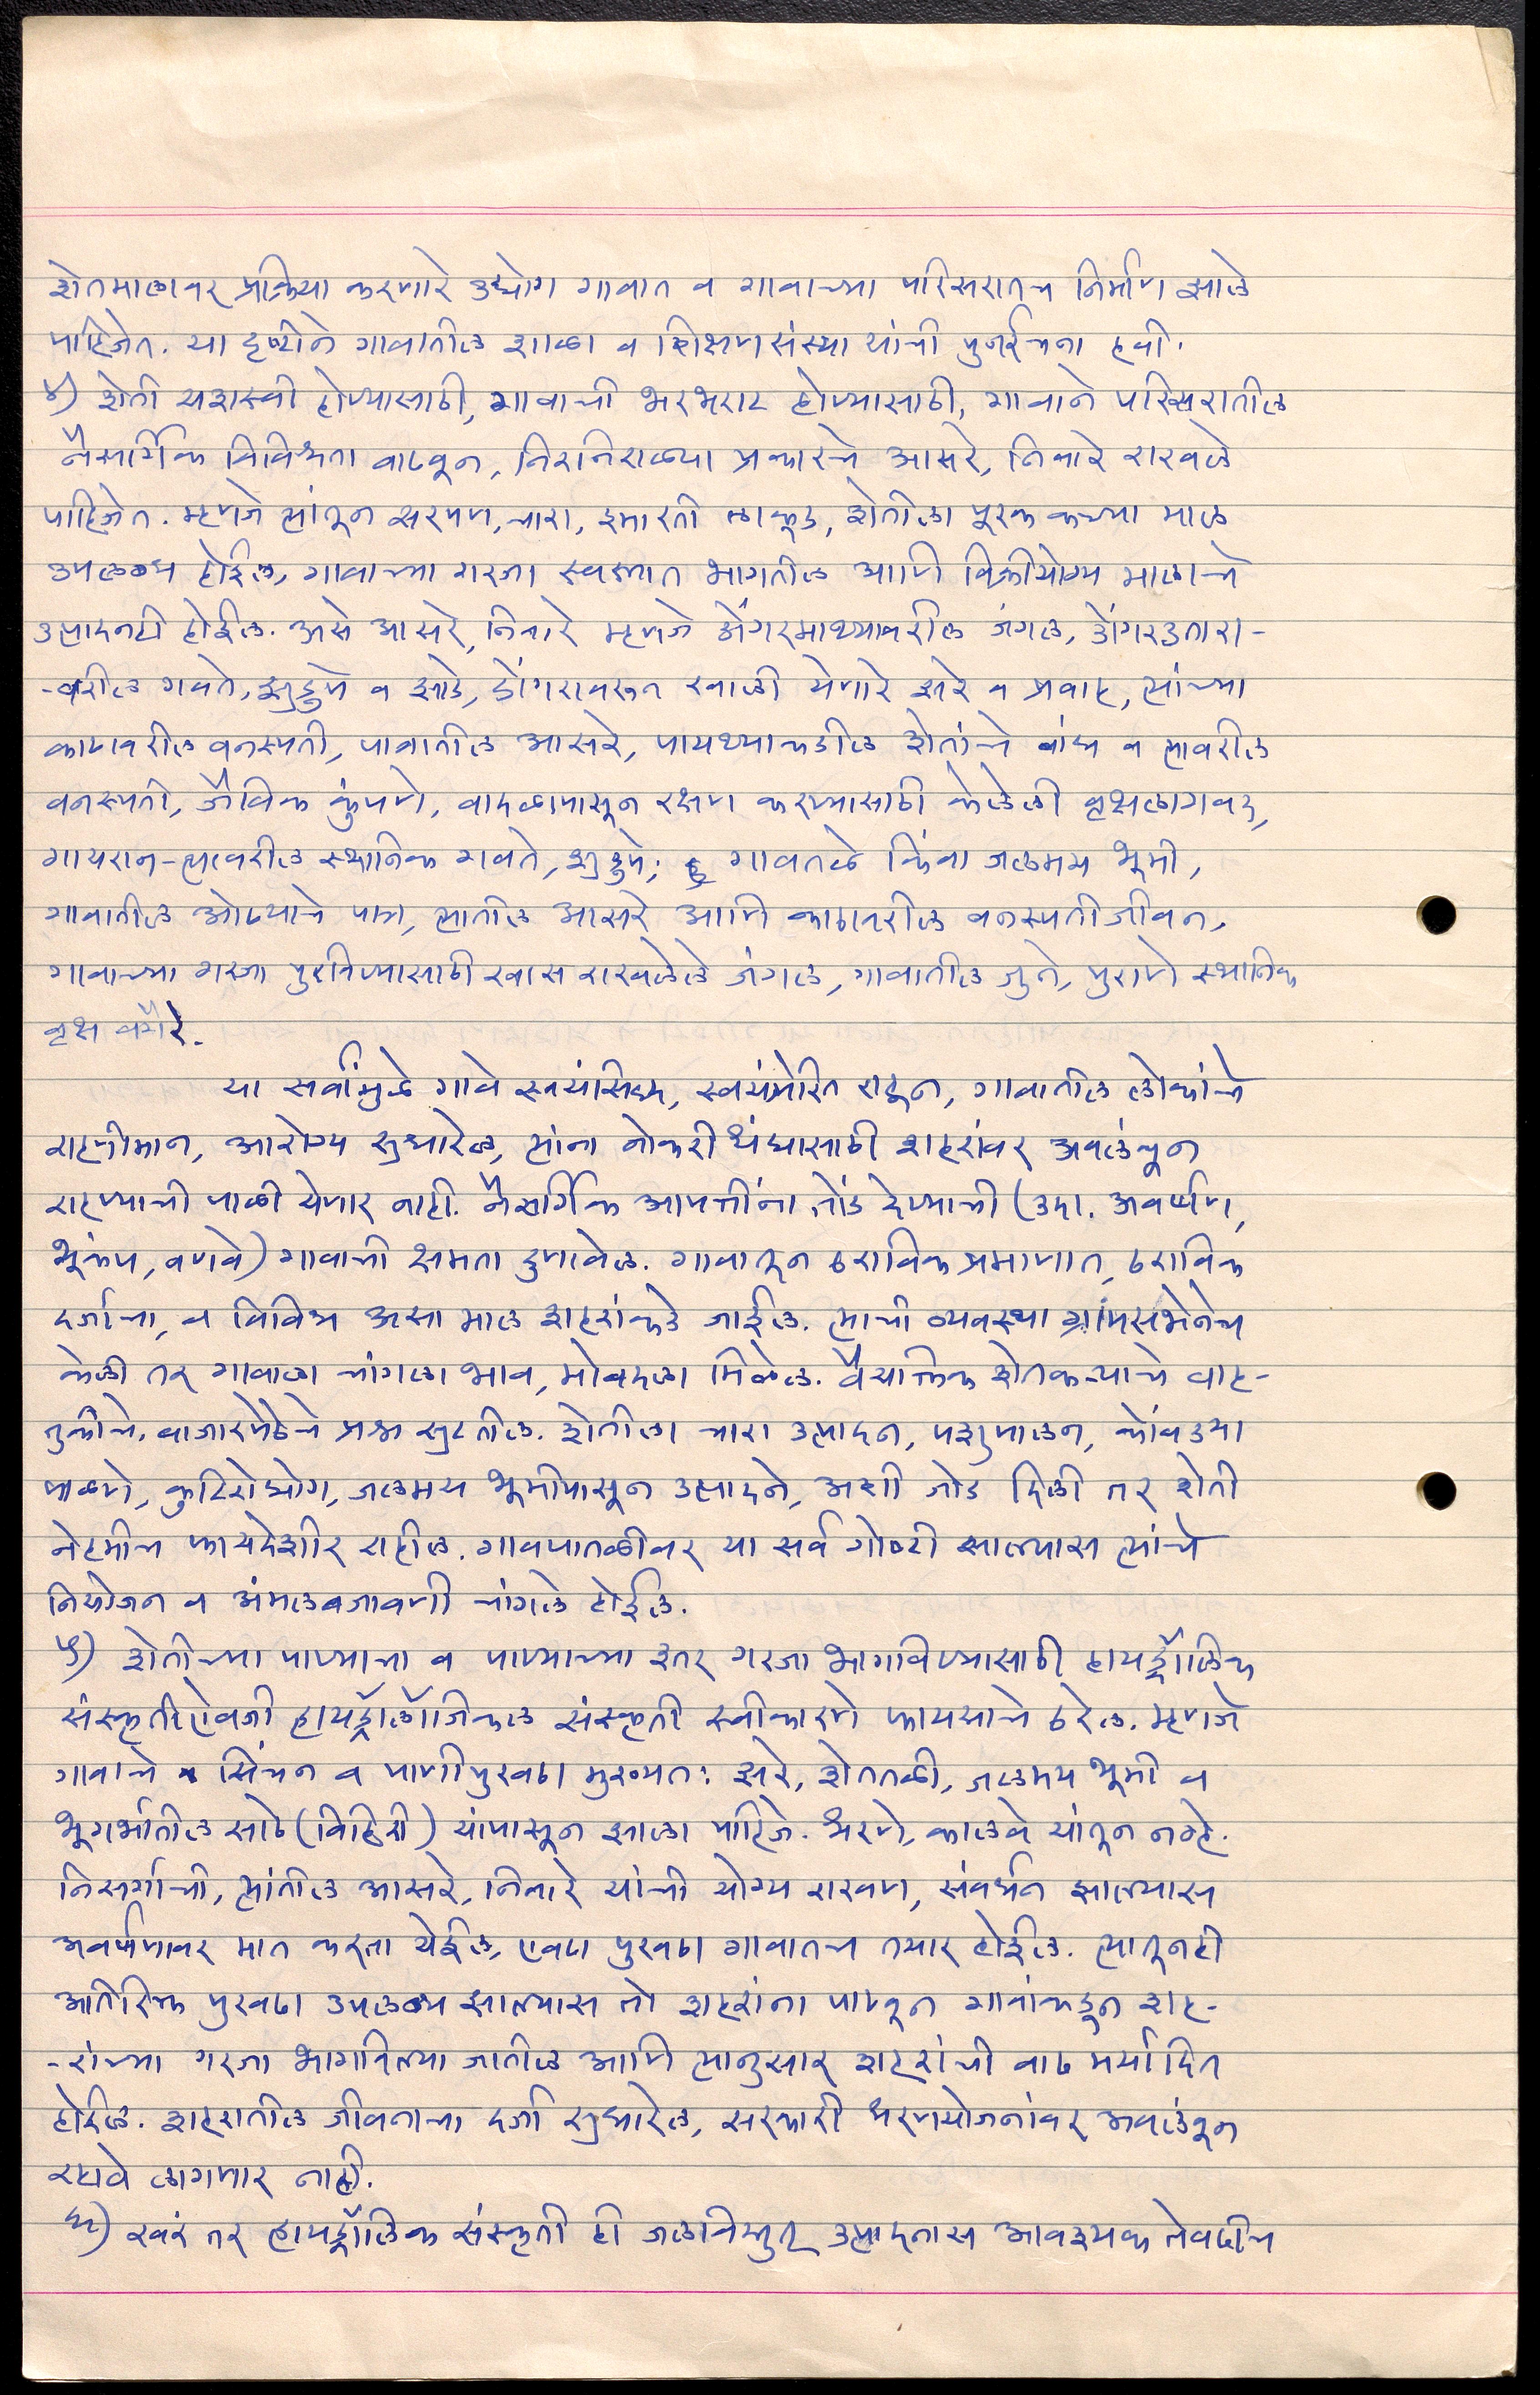 शेतमालावर प्रक्रिया करणारे उद्योग गावात व गावाच्या परिसरातच निर्माण झाले
पाहिजेत. या दृष्टीने गावातील शाळा व शिक्षणसंस्था यांची पुनर्रचना हवी.
४) शेती यशस्वी होण्यासाठी, गावाची भरभराट होण्यासाठी, गावाने परिसरातील
नैसर्गिक विविधता वाढवून, निरनिराळ्या प्रकारचे आसरे, निवारे राखले
पाहिजेत. म्हणजे त्यांतून सरपण, चारा, इमारती लाकूड, शेतीला पूरक कच्चा माल
उपलब्ध होईल, गावाच्या गरजा स्वस्तात भागतील आणि विक्रीयोग्य मालाचे
उत्पादनही होईल. असे आसरे, निवारे म्हणजे डोंगरमाथ्यावरील जंगल, डोंगरउतारा-
-वरील गवते, झुडुपे व झाडे, डोंगरावरून खाली येणारे झरे व प्रवाह, त्यांच्या
काठावरील वनस्पती, पात्रातील आसरे, पायथ्याकडील शेतांचे बांध व त्यावरील
वनस्पती, जैविक कुंपणे, वादळापासून रक्षण करण्यासाठी केलेली वृक्षलागवड,
गायरान-त्यावरील स्थानिक गवते, झुडुपे; गावतळे किंवा जलमय भूमी,
गावातील ओढ्याचे पात्र, त्यातील आसरे आणि काठावरील वनस्पतीजीवन,
गावाच्या गरजा पुरविण्यासाठी खास राखलेले जंगल, गावातील जुने, पुराणे स्थानिक
वृक्ष वगैरे.
या सर्वांमुळे गावे स्वयंसिद्ध, स्वयंप्रेरित राहून, गावातील लोकांचे
राहणीमान, आरोग्य सुधारेल, त्यांना नोकरी धंद्यासाठी शहरांवर अवलंबून
राहण्याची पाळी येणार नाही. नैसर्गिक आपत्तींना तोंड देण्याची (उदा. अवर्षण,
भूकंप, वणवे) गावाची क्षमता दुणावेल. गावातून ठराविक प्रमाणात, ठराविक
दर्जाचा, व विविध असा माल शहरांकडे जाईल. त्याची व्यवस्था ग्रामसभेनेच
केली तर गावाला चांगला भाव, मोबदला मिळेल. वैयक्तिक शेतकऱ्याचे वाह-
तुकीचे, बाजारपेठेचे प्रश्न सुटतील. शेतीला चारा उत्पादन, पशुपालन, कोंबड्या
पाळणे, कुटिरोद्योग, जलमय भूमीपासून उत्पादने, अशी जोड दिली तर शेती
नेहमीच फायदेशीर राहील. गावपातळीवर या सर्व गोष्टी झाल्यास त्यांचे
नियोजन व अंमलबजावणी चांगले होईल.
५) शेतीच्या पाण्याचा व पाण्याच्या इतर गरजा भागविण्यासाठी हायड्रॉलिक
संस्कृतीऐवजी हायड्रॉलॉजिकल संस्कृती स्वीकारणे फायद्याचे ठरेल. म्हणजे
गावाचे सिंचन व पाणीपुरवठा मुख्यतः झरे, शेततळी, जलमय भूमी व
भूगर्भातील साठे (विहिरी) यांपासून झाला पाहिजे. धरणे, कालवे यांतून नव्हे.
निसर्गाची, त्यांतील आसरे, निवारे यांची योग्य राखण, संवर्धन झाल्यास
अवर्षणावर मात करता येईल, एवढा पुरवठा गावातच तयार होईल. त्यातूनही
अतिरिक्त पुरवठा उपलब्ध झाल्यास तो शहरांना पाठवून गावांकडून शह-
-रांच्या गरजा भागविल्या जातील आणि त्यानुसार शहरांची वाढ मर्यादित
होईल. शहरातील जीवनाचा दर्जा सुधारेल, सरकारी धरणयोजनांवर अवलंबून
रहावे लागणार नाही.
६) खरं तर हायड्रॉलिक संस्कृती ही जलविद्युत् उत्पादनास आवश्यक तेवढीच